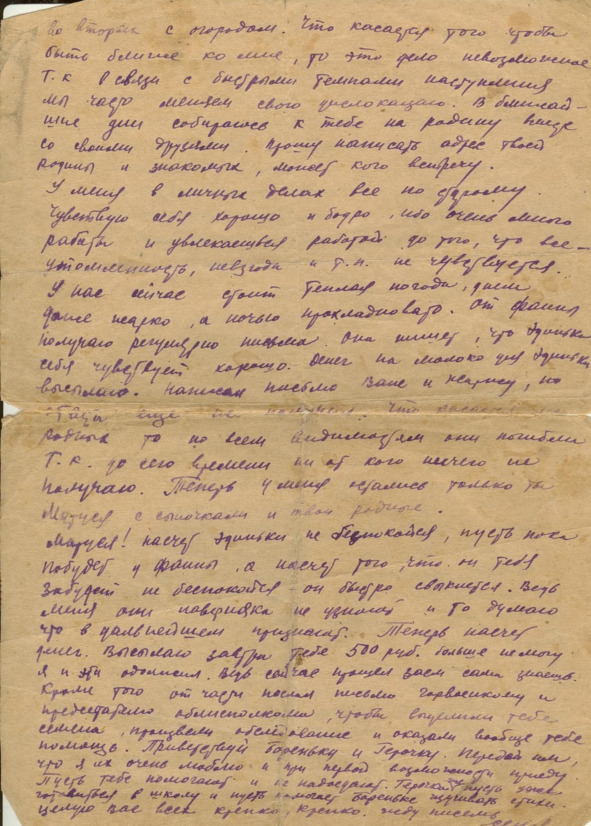 во вторник с огородом. Что касается того чтобы
быть ближе ко мне, то это дело невозможное
т.к в связи с быстрыми темпами наступления
мы часто меняем свою дислокацию. В ближай-
шие дни собираюсь к тебе на родину
со своими друзьями. Прошу написать адрес твоей
родины и знакомых, может кого встречу.
У меня в личных делах все по старому.
Чувствую себя хорошо и бодро, ибо очень много
работы и увлекаешься работой до того, что вся
утомленность, невзгоды и т.п. не чувствуется.
У нас сейчас стоит теплая погода, днем
даже жарко, а ночью прохладновато. От Фани
получаю регулярно письма. Она пишет, что Эдинька
себя чувствует хорошо. Денег на молоко для Эдиньки
высылаю. Написал письмо Вале и, но
еще не. Что касается
родных то по всем видимостям они погибли
т.к. до сего времени ни от кого ничего не
получаю. Теперь у меня остались только ты
Матуся с сыночками и твои родные.
Матуся! Насчет Эдиньки не беспокойся, пусть пока
побудет у Фанны, а насчет того, что он тебя
забудет не беспокойся он быстро свыкнется. Ведь
меня они наверняка не узнают и то думаю
что в дальнейшем признают. Теперь насчет
денег. Высылаю завтра тебе 500 руб. больше не могу
я и эти одолжил. Ведь сейчас прошел заем сама знаешь.
Кроме того от части послал письмо горвоенкому и
председателю облисполкома, чтобы выделили тебе
семена, произвели обследование и оказали вообще тебе
помощь. Приветствуй Бореньку и Герочку. Передай им,
что я их очень люблю и при первой возможности приеду.
Пусть тебе помогают и не надоедают. Герочка пусть уже
готовиться в школу и пусть помогает Бореньке изучивать стихи.
Целую вас всех крепко, крепко. Жду писем